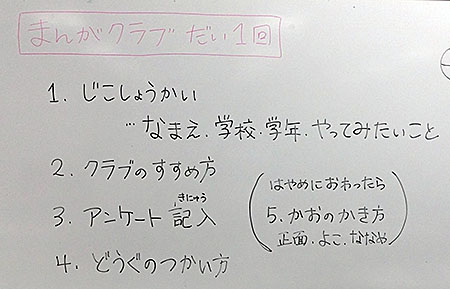 まんがクラブ だい1回
1. じこしょうかい
…なまえ.学校.学年.やってみたいこと
2. クラブのすすめ方
3. アンケート記入
きにゅう
4. どうぐのつかい方
はやめにおわったら
5. かおのかき方
正面.よこ.ななめ